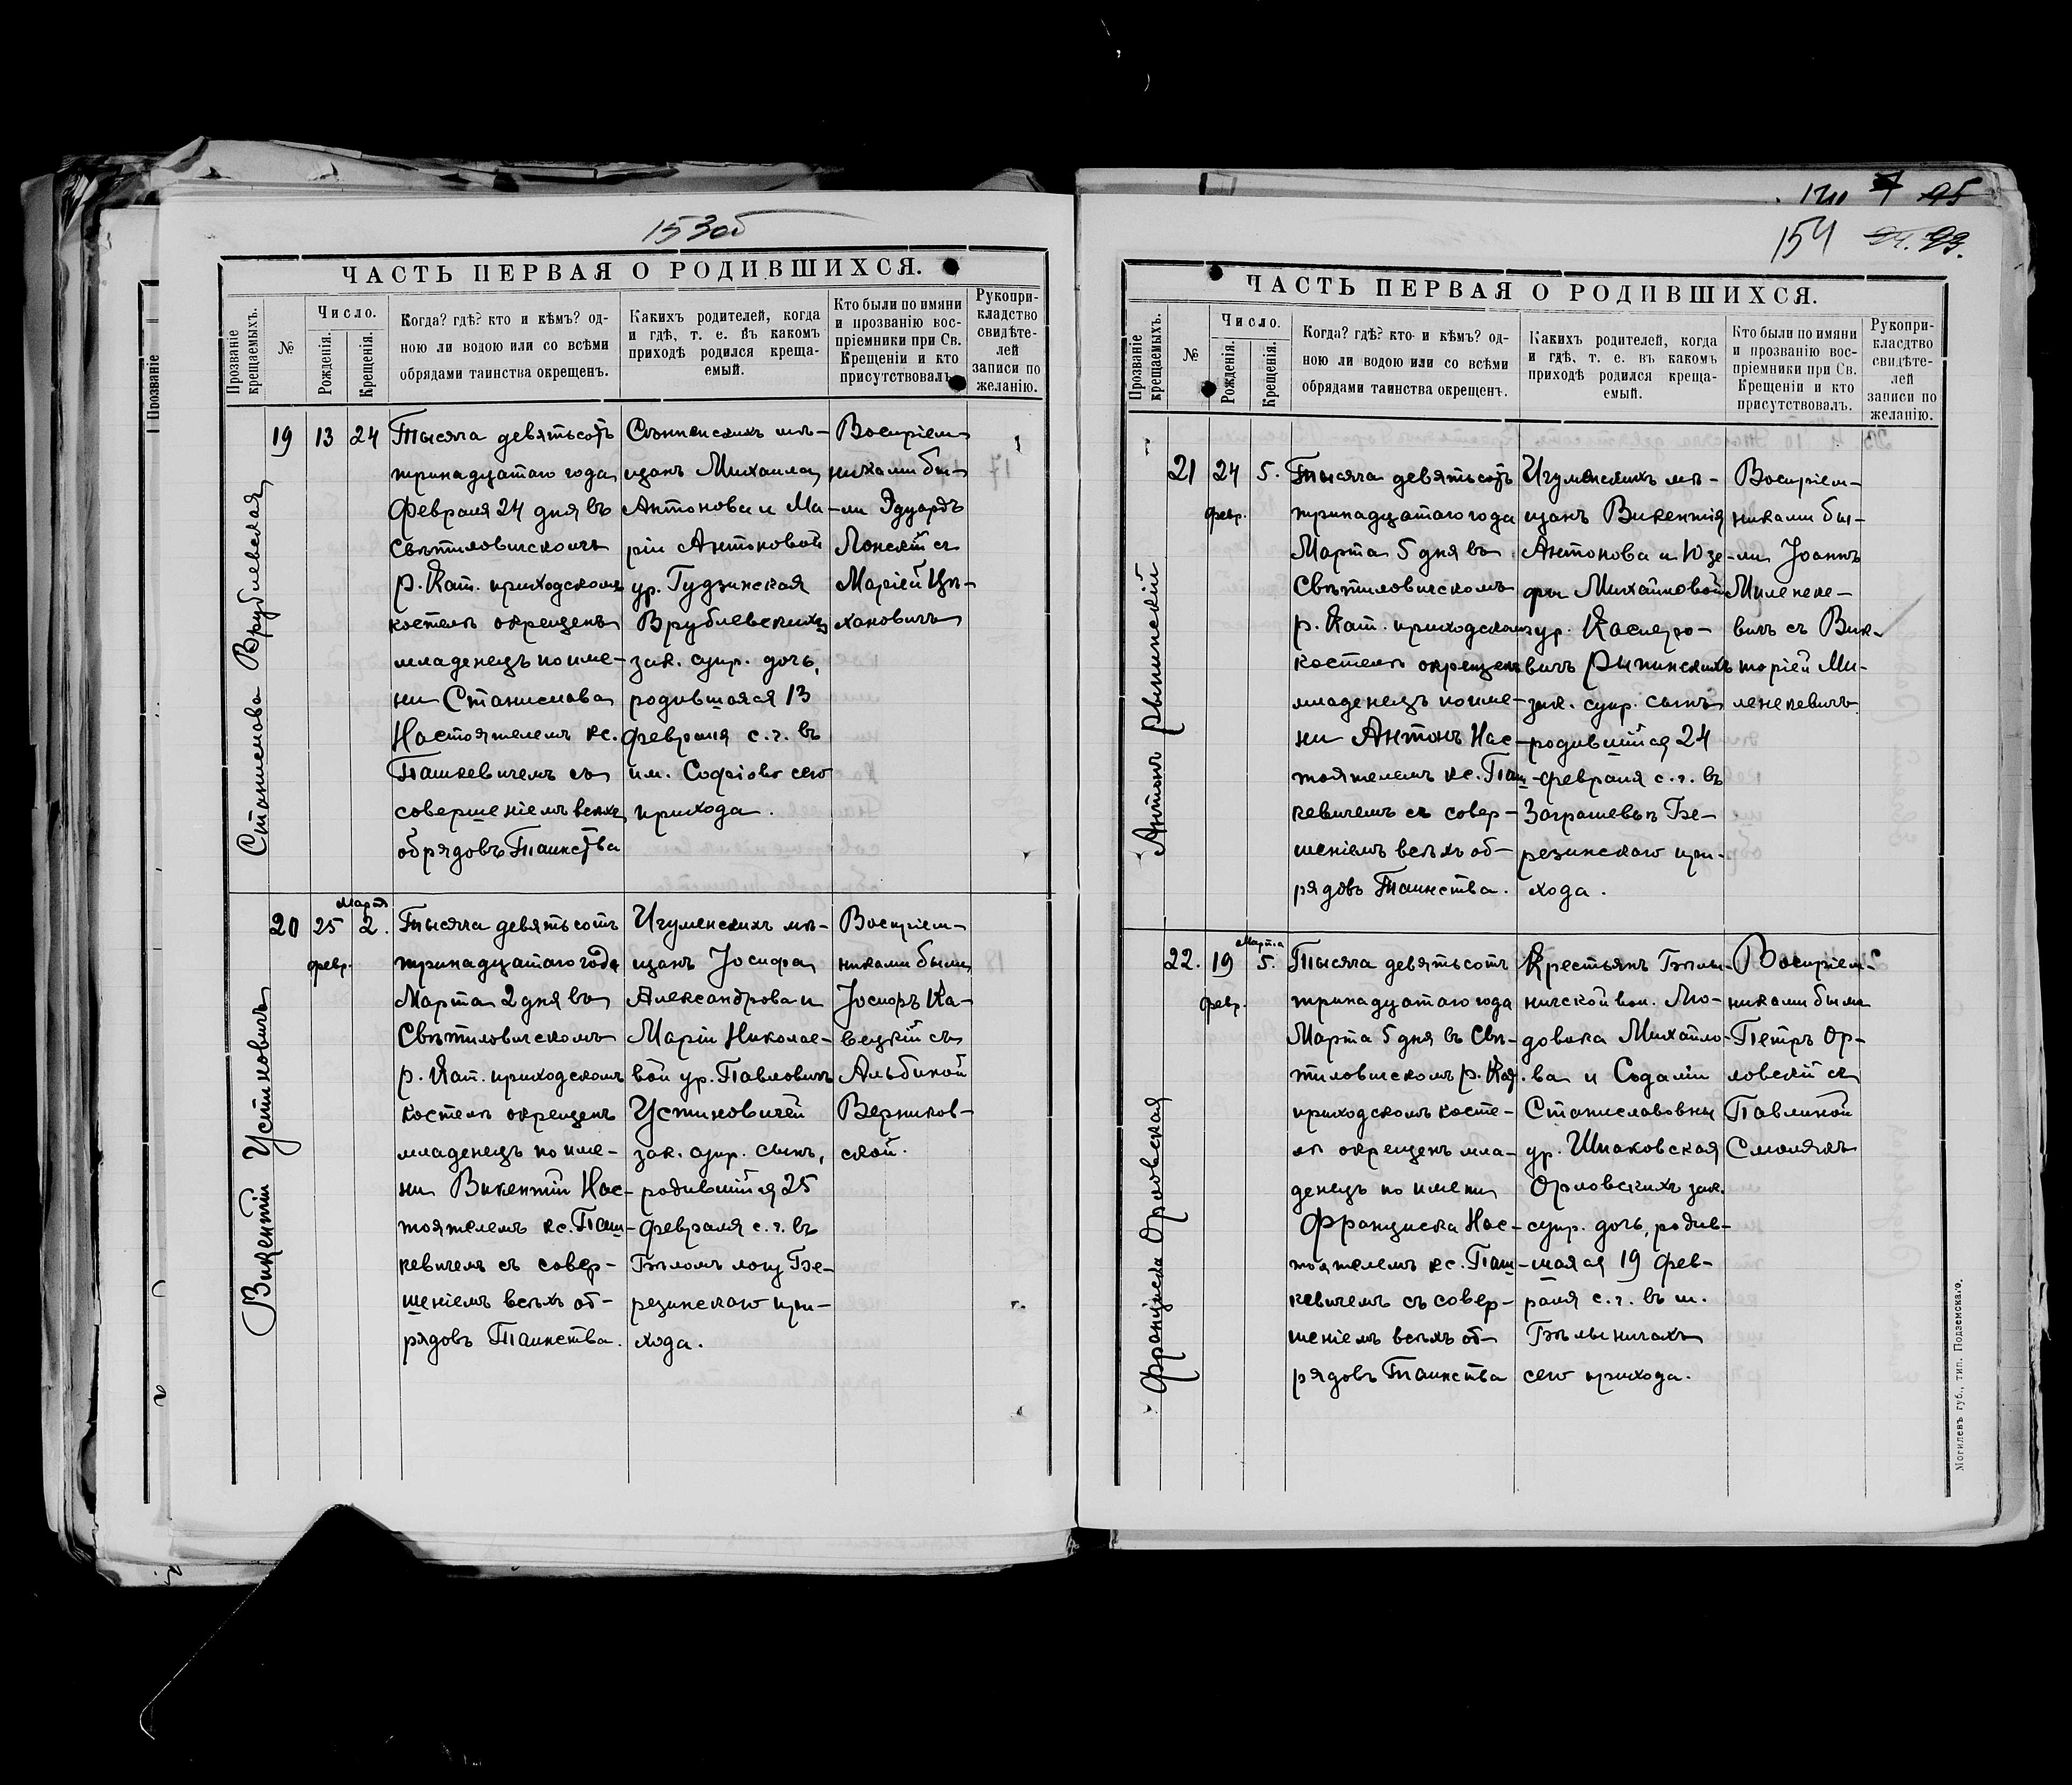 153об
ЧАСТЬ ПЕРВАЯ О РОДИВШИХСЯ.
Прозваніе крещаемыхъ.
№
Число.
Рожденія.
Крещенія.
Когда? гдѣ? кто и кѣмъ? од-
ною ли водою или со всѣми
обрядами таинства окрещенъ.
Какихъ родителей, когда
и гдѣ, т. е. въ какомъ
приходѣ родился креща-
емый.
Кто были по имяни
и прозванію вос-
пріемники при Св.
Крещеніи и кто
присутствовалъ.
Рукопри-
кладство
свидѣте-
лей
записи по
желанію.
Станислава Врублевская
19
13
24
Тысяча девятьсотъ
тринадцатаго года
Февраля 24 дня въ
Свѣтиловичскомъ
р. Кат. приходскомъ
костелѣ окрещенъ
младенецъ по име-
ни Станислава
Настоятелемъ кс.
Пашкевичемъ съ
совершеніемъ всѣхъ
обрядовъ Таинства
Сѣнненскихъ мѣ-
щанъ Михаила
Антонова и Ма-
ріи Антоновой
ур. Гудзинская
Врублевскихъ
зак. супр. дочь,
родившаяся 13
февраля с. г. въ
им. Софіово сего
прихода.
Воспріем-
никами бы-
ли Эдуардъ
Лонскій съ
Маріей Цѣ-
хановичъ
Викентій Устиновичъ
20
25
февр.
Марта
2.
Тысяча девятьсотъ
тринадцатаго года
Марта 2 дня въ
Свѣтиловичскомъ
р. Кат. приходскомъ
костелѣ окрещенъ
младенецъ по име-
ни Викентій Нас-
тоятелемъ кс. Паш-
кевичемъ съ совер-
шеніемъ всѣхъ об-
рядовъ Таинства.
Игуменскихъ мѣ-
щанъ Іосифа
Александрова и
Маріи Николае-
вой ур. Павловичъ
Устиновичей
зак. супр. сынъ,
родившійся 25
февраля с. г. въ
Бѣломъ логу Бе-
резинскаго при-
хода.
Воспріем-
никами были
Іосифъ Ка-
вецкій съ
Альбиной
Верников-
ской.
154
93.
ЧАСТЬ ПЕРВАЯ О РОДИВШИХСЯ.
Прозваніе крещаемыхъ.
№
Число.
Рожденія.
Крещенія.
Когда? гдѣ? кто и кѣмъ? од-
ною ли водою или со всѣми
обрядами таинства окрещенъ.
Какихъ родителей, когда
и гдѣ, т. е. въ какомъ
приходѣ родился креща-
емый.
Кто были по имяни
и прозванію вос-
пріемники при Св.
Крещеніи и кто
присутствовалъ.
Рукопри-
класдтво
свидѣте-
лей
записи по
желанію.
Антонъ Рыпинскій
21
24
февр.
5.
Тысяча девятьсотъ
тринадцатаго года
Марта 5 дня въ
Свѣтиловичскомъ
р. Кат. приходскомъ
костелѣ окрещенъ
младенецъ по име-
ни Антонъ Нас-
тоятелемъ кс. Паш-
кевичемъ съ совер-
шеніемъ всѣхъ об-
рядовъ Таинства.
Игуменскихъ мѣ-
щанъ Викентія
Антонова и Юзе-
фы Михайловой
ур. Касперо-
вичъ Рыпинскихъ
зак. супр. сынъ
родившійся 24
февраля с. г. въ
Заграшевьѣ Бе-
резинскаго при-
хода.
Воспріем-
никами бы-
ли Іоаннъ
Миленке-
вичъ съ Вик-
торіей Ми-
ленкевичъ
Франциска Орловская
22.
19
февр.
Марта
5.
Тысяча девятьсотъ
тринадцатаго года
Марта 5 дня въ Свѣ-
тиловичскомъ р. Кат.
приходскомъ косте-
лѣ окрещенъ мла-
денецъ по имени
Франциска Нас-
тоятелемъ кс. Паш-
кевичемъ съ совер-
шеніемъ всѣхъ об-
рядовъ Таинства
Крестьянъ Бѣлы-
ничской вол. Лю-
довика Михайло-
ва и Содаліи
Станиславовны
ур. Шпаковская
Орловскихъ зак.
супр. дочь, родив-
шаяся 19 фев-
раля с. г. въ м.
Бѣлыничахъ
сего прихода.
Воспріем-
никами были
Петръ Ор-
ловскій съ
Павлиной
Смолякъ
Могилевъ губ., тип. Подземскаго.